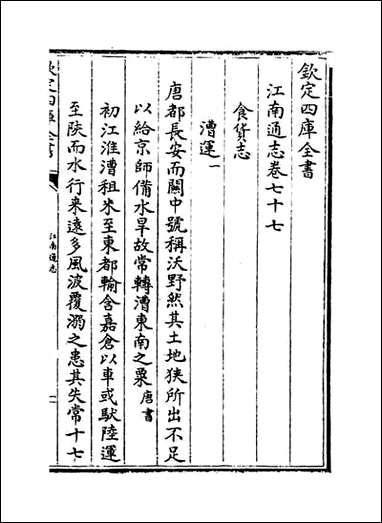 欽定四庫全書
江南通志卷七十七
食貨志
漕運一
唐都長安而關中號稱沃野然其土地狹所出不足
以給京師備水旱故常轉漕東南之粟唐書
初江淮漕租米至東都輸含嘉倉以車或馱陸運
至陜而水行来遠多風波覆溺之患其失常十七
欽定四庫全書
江南通志